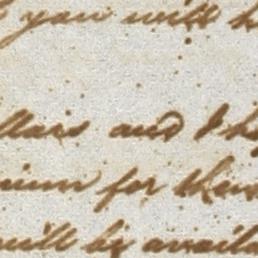 you will
llars and I h
ium for thei
will be avail